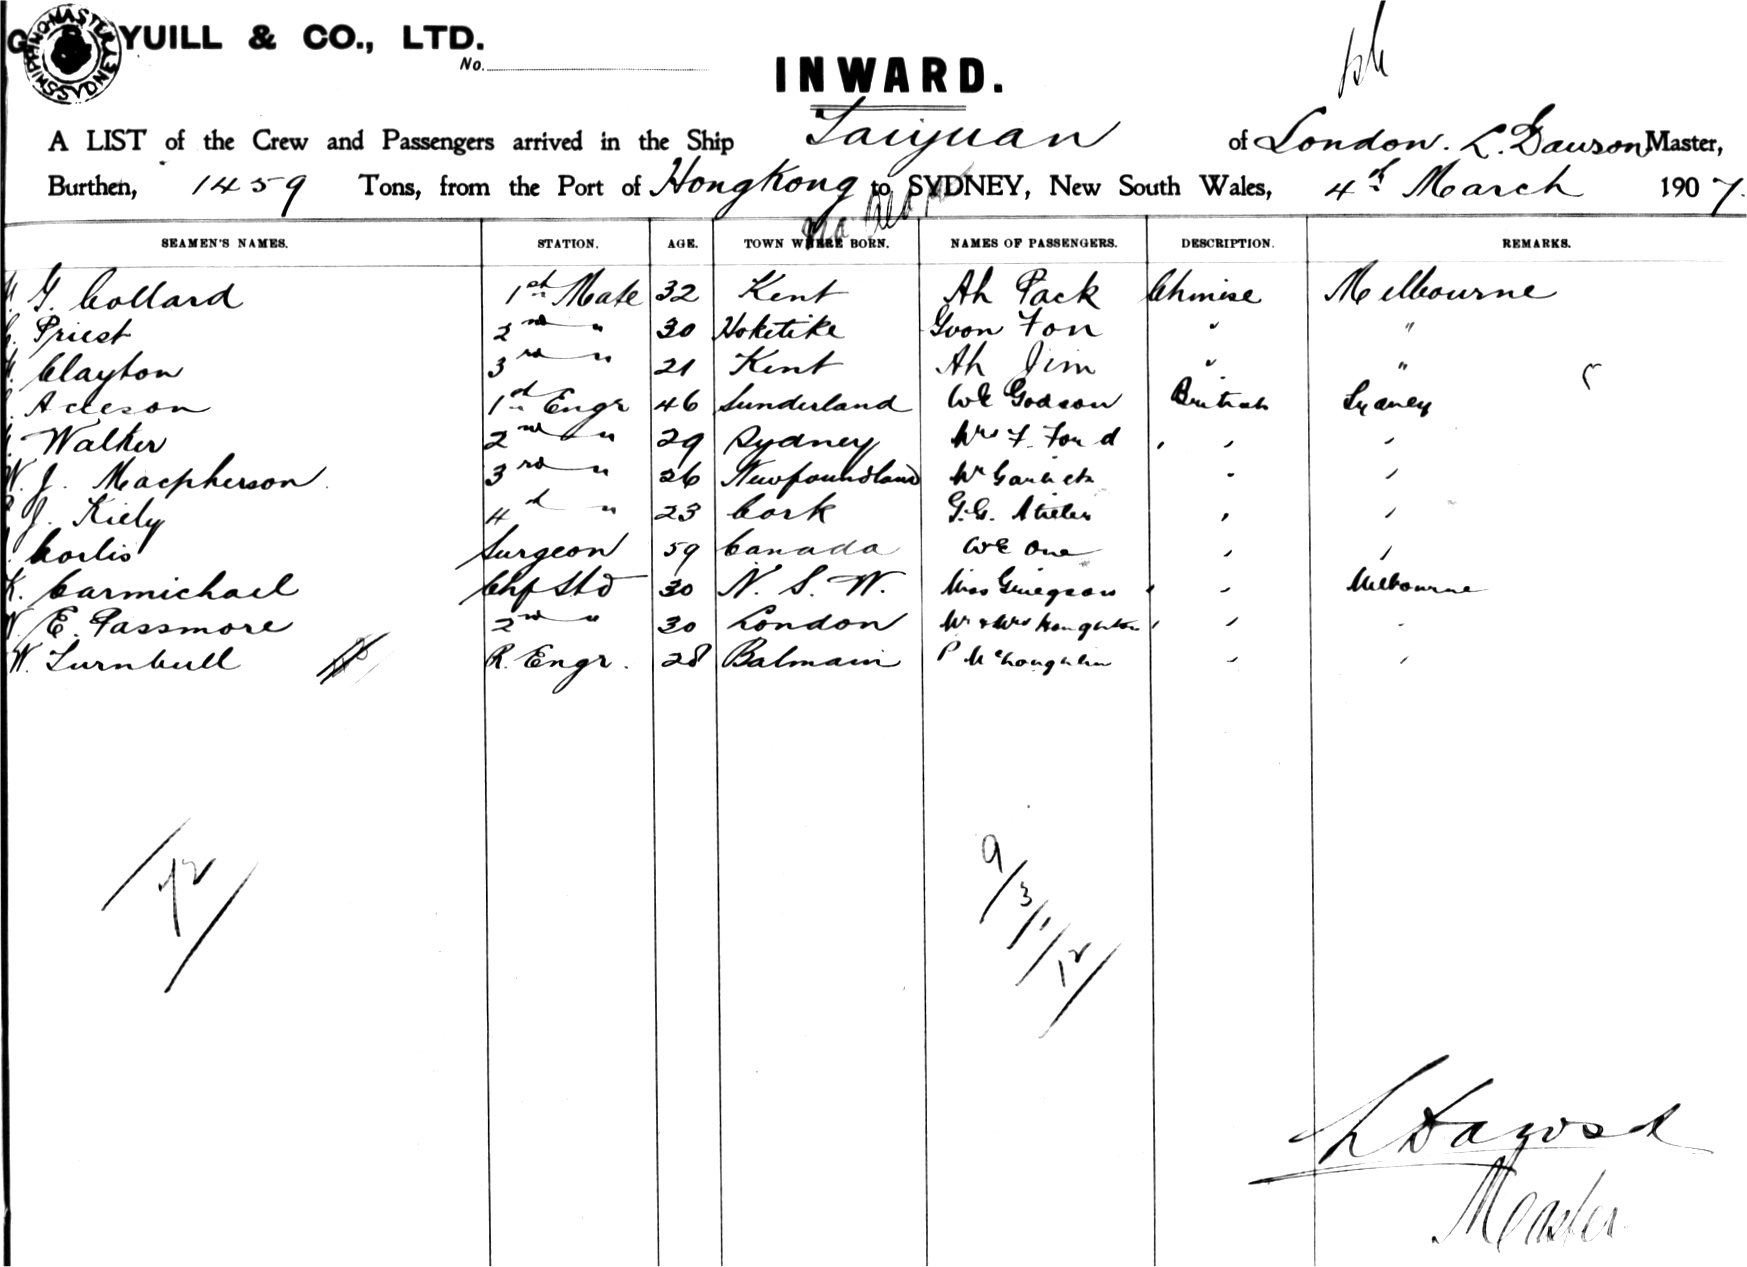 YUILL & CO., LTD.
No.
INWARD.
A LIST of the Crew and Passengers arrived in the Ship Taiyuan of London. L. Dawson Master,
Burthen, 1459 Tons, from the Port of Hongkong to SYDNEY, New South Wales, 4th March 1907.
via
SEAMEN'S NAMES. STATION. AGE. TOWN WHERE BORN. NAMES OF PASSENGERS. DESCRIPTION. REMARKS.
G. Collard 1st Mate 32 Kent Ah Pack Chinese Melbourne
Priest 2nd " 30 Hoketike Gvon Fon " "
Clayton 3rd " 21 Kent Ah Jim " "
Acheson 1st Engr 46 Sunderland Godson British Sydney
Walker 2nd " 29 Sydney Mrs F. Ford " "
W. J. Macpherson 3rd " 26 Newfoundland Mr " "
J. Kiely 4th " 23 Cork G.G. " "
Corlis Surgeon 59 Canada One " "
K. Carmichael Chf Std 30 N. S. W. Miss " Melbourne
W. E. Passmore 2nd " 30 London Mr & Mrs Houghton " "
W. Turnbull R. Engr. 28 Balmain P " "
12
9/3/1/12
L Dawson
Master